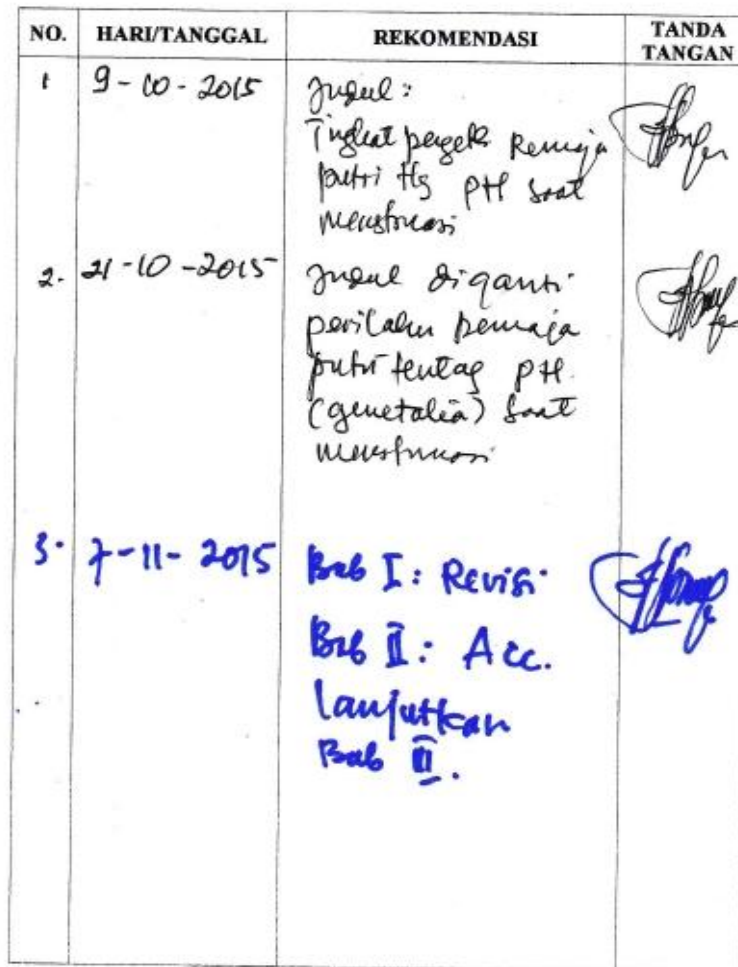 NO. HARI/TANGGAL REKOMENDASI TANDA TANGAN
1 9-10-2015 Judul:
Tingkat penget. Remaja
putri ttg PH saat
menstruasi
2. 21-10-2015 Judul diganti
perilaku remaja
putri tentag PH
(genetalia) saat
menstruasi
3. 7-11-2015 Bab I: Revisi
Bab II: Acc.
lanjutkan
Bab III.